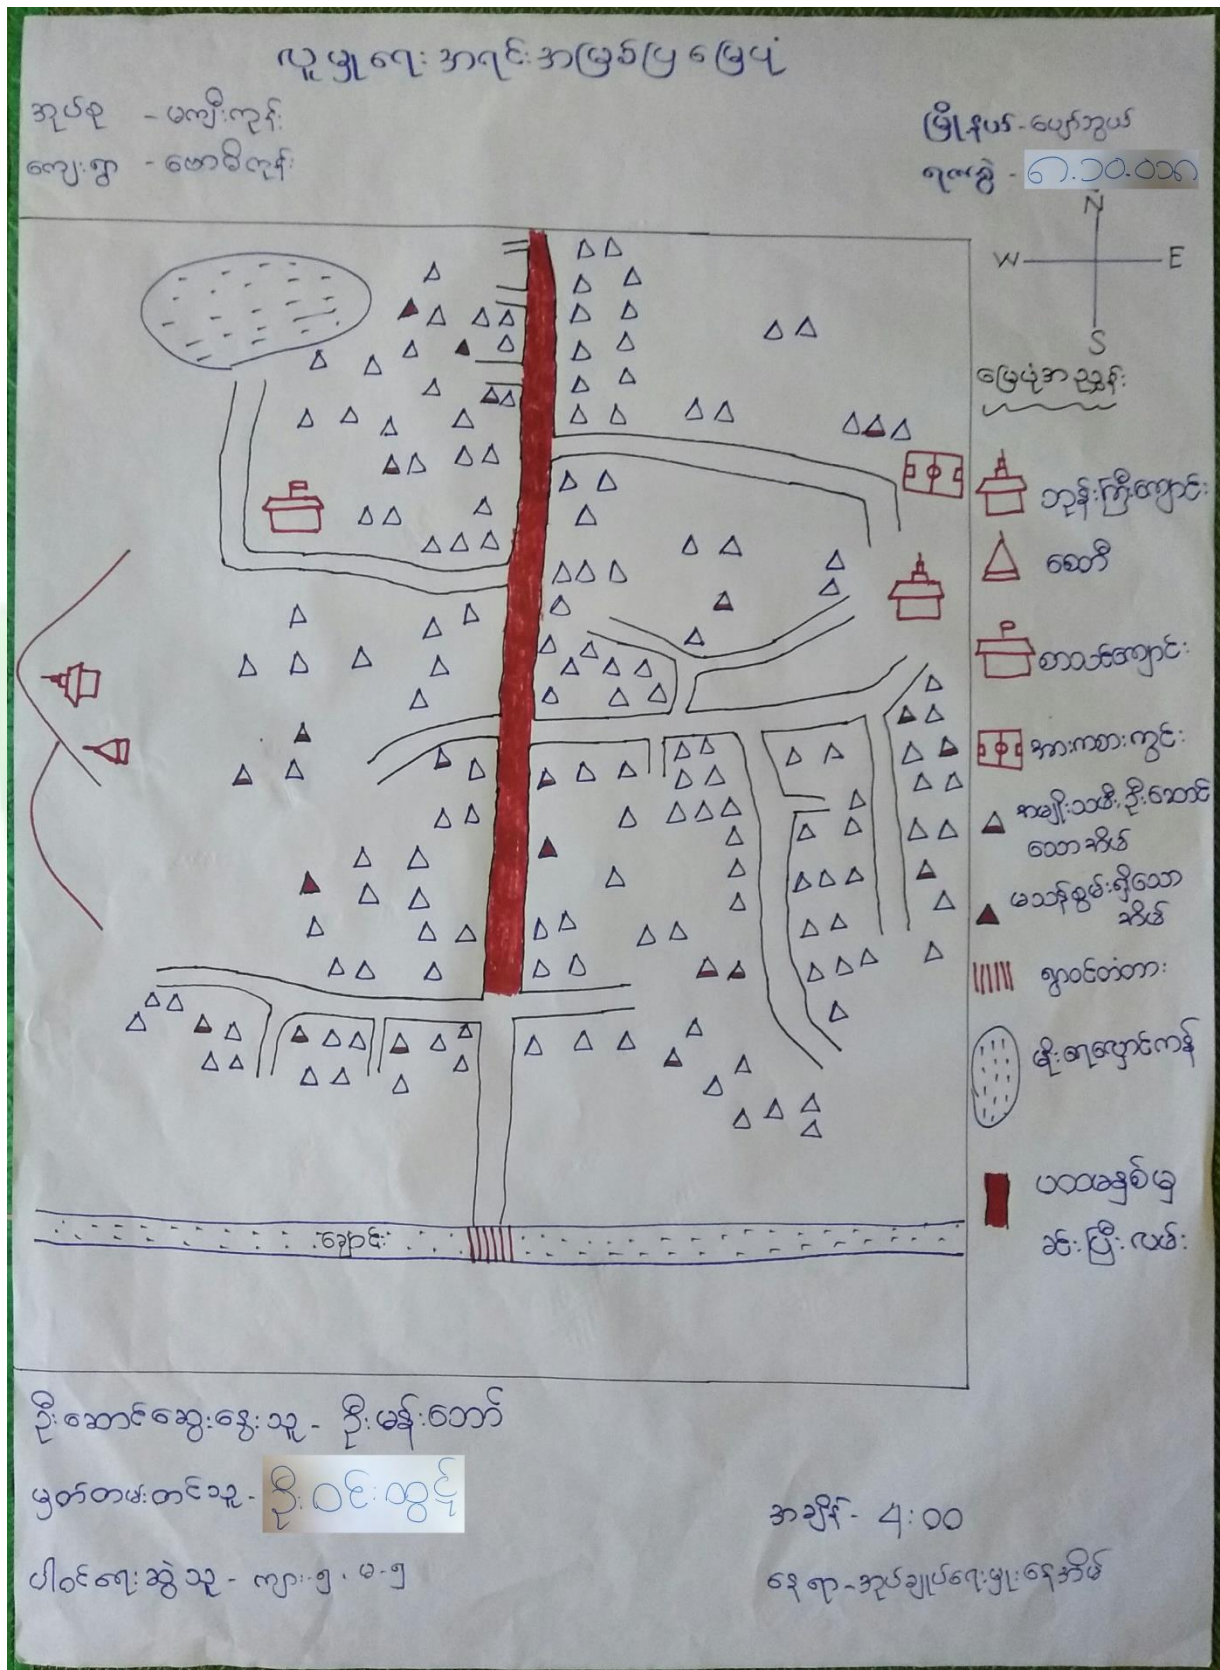 လူမှုရေးအရင်းအမြစ်ပြမြေပုံ
အုပ်စု - မကျီးကုန်း
မြို့နယ် - ပျော်ဘွယ်
ကျေးရွာ - ဗောဓိကုန်း
ရက်စွဲ - ၈.၁၀.၀၁၈
N
W E
S
မြေပုံအညွှန်း
ဘုန်းကြီးကျောင်း
စေတီ
စာသင်ကျောင်း
အားကစားကွင်း
အမျိုးသမီးဦးဆောင်
သောအိမ်
မသန်စွမ်းရှိသော
အိမ်
ရွာဝင်တံတား
မိုးရေလှောင်ကန်
ပထမနှစ်မှ
ခင်းပြီးလမ်း
ချောင်း
ဦးဆောင်ဆွေးနွေးသူ - ဦးမန်းဘော်
မှတ်တမ်းတင်သူ - ဦးဝင်းထွင့်
အချိန် - 4:00
ပါဝင်ရေးဆွဲသူ - ကျား-၅၊ မ-၅
နေရာ - အုပ်ချုပ်ရေးမှူးနေအိမ်